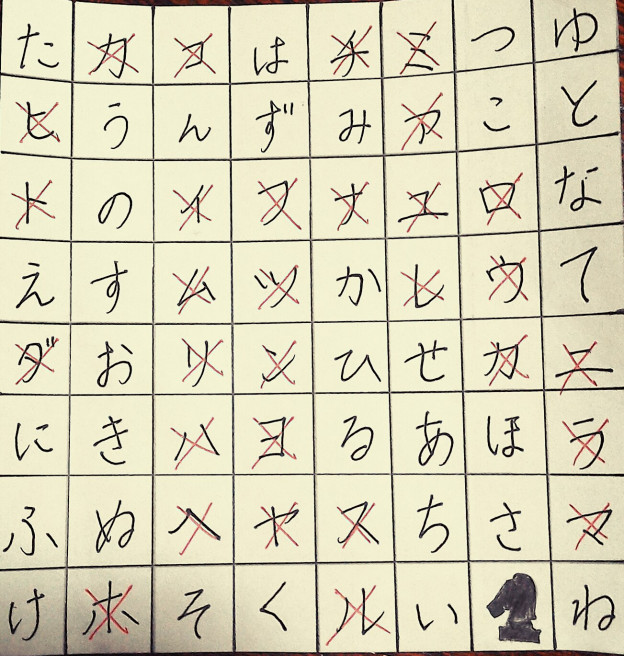 た カ コ は チ ミ つ ゆ
ヒ う ん ず み ア こ と
ト の イ フ ナ エ ロ な
え す ム ツ か レ ウ て
ダ お リ ン ひ せ カ ニ
に き ハ ヨ る あ ほ ラ
ふ ぬ ヘ ヤ ス ち さ マ
け ホ そ く ル い ね